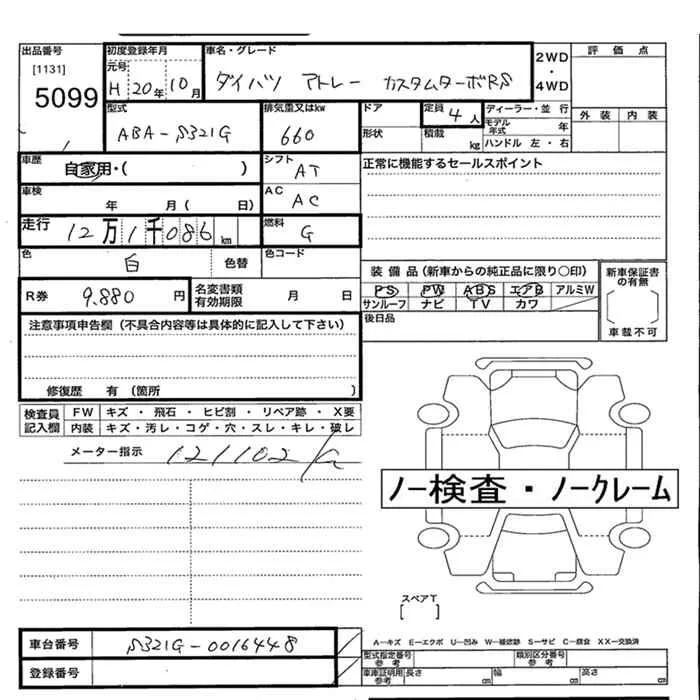 出品番号 初度登録年月 車名・グレード 2WD・4WD 評価点
[1131] 元号
5099 H 20年 10月 ダイハツ アトレー カスタムターボRS
型式 排気量又はkw ドア 定員 4人 ディーラー・並行 外装 内装
ABA-S321G 660 形状 積載 kg モデル年式 年
ハンドル 左・右
車歴 自家用・( ) シフト AT 正常に機能するセールスポイント
車検 年 月( 日) AC AC
走行 12万1千086km 燃料 G
色 白 色替 色コード 装備品(新車からの純正品に限り○印) 新車保証書の有無
PS PW ABS エアB アルミW
R券 9.880円 名変書類有効期限 月 日 サンルーフ ナビ TV カワ 車載不可
注意事項申告欄(不具合内容等は具体的に記入して下さい) 後日品
修復歴 有(箇所 )
検査員記入欄 FW キズ・飛石・ヒビ割・リペア跡・X要
内装 キズ・汚レ・コゲ・穴・スレ・キレ・破レ
メーター指示 121102
ノー検査・ノークレーム
スペアT
[ ]
A—キズ E—エクボ U—凹み W—補修跡 S—サビ C—腐食 XX—交換済
車台番号 S321G-0016448 型式指定番号参考 類別区分番号参考
登録番号 車庫証明用参考 長さ cm 幅 cm 高さ cm